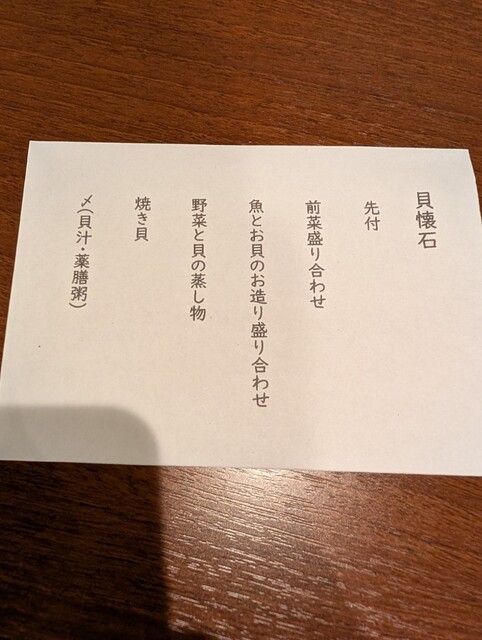 貝懐石
先付
前菜盛り合わせ
魚とお貝のお造り盛り合わせ
野菜と貝の蒸し物
焼き貝
〆(貝汁・薬膳粥)